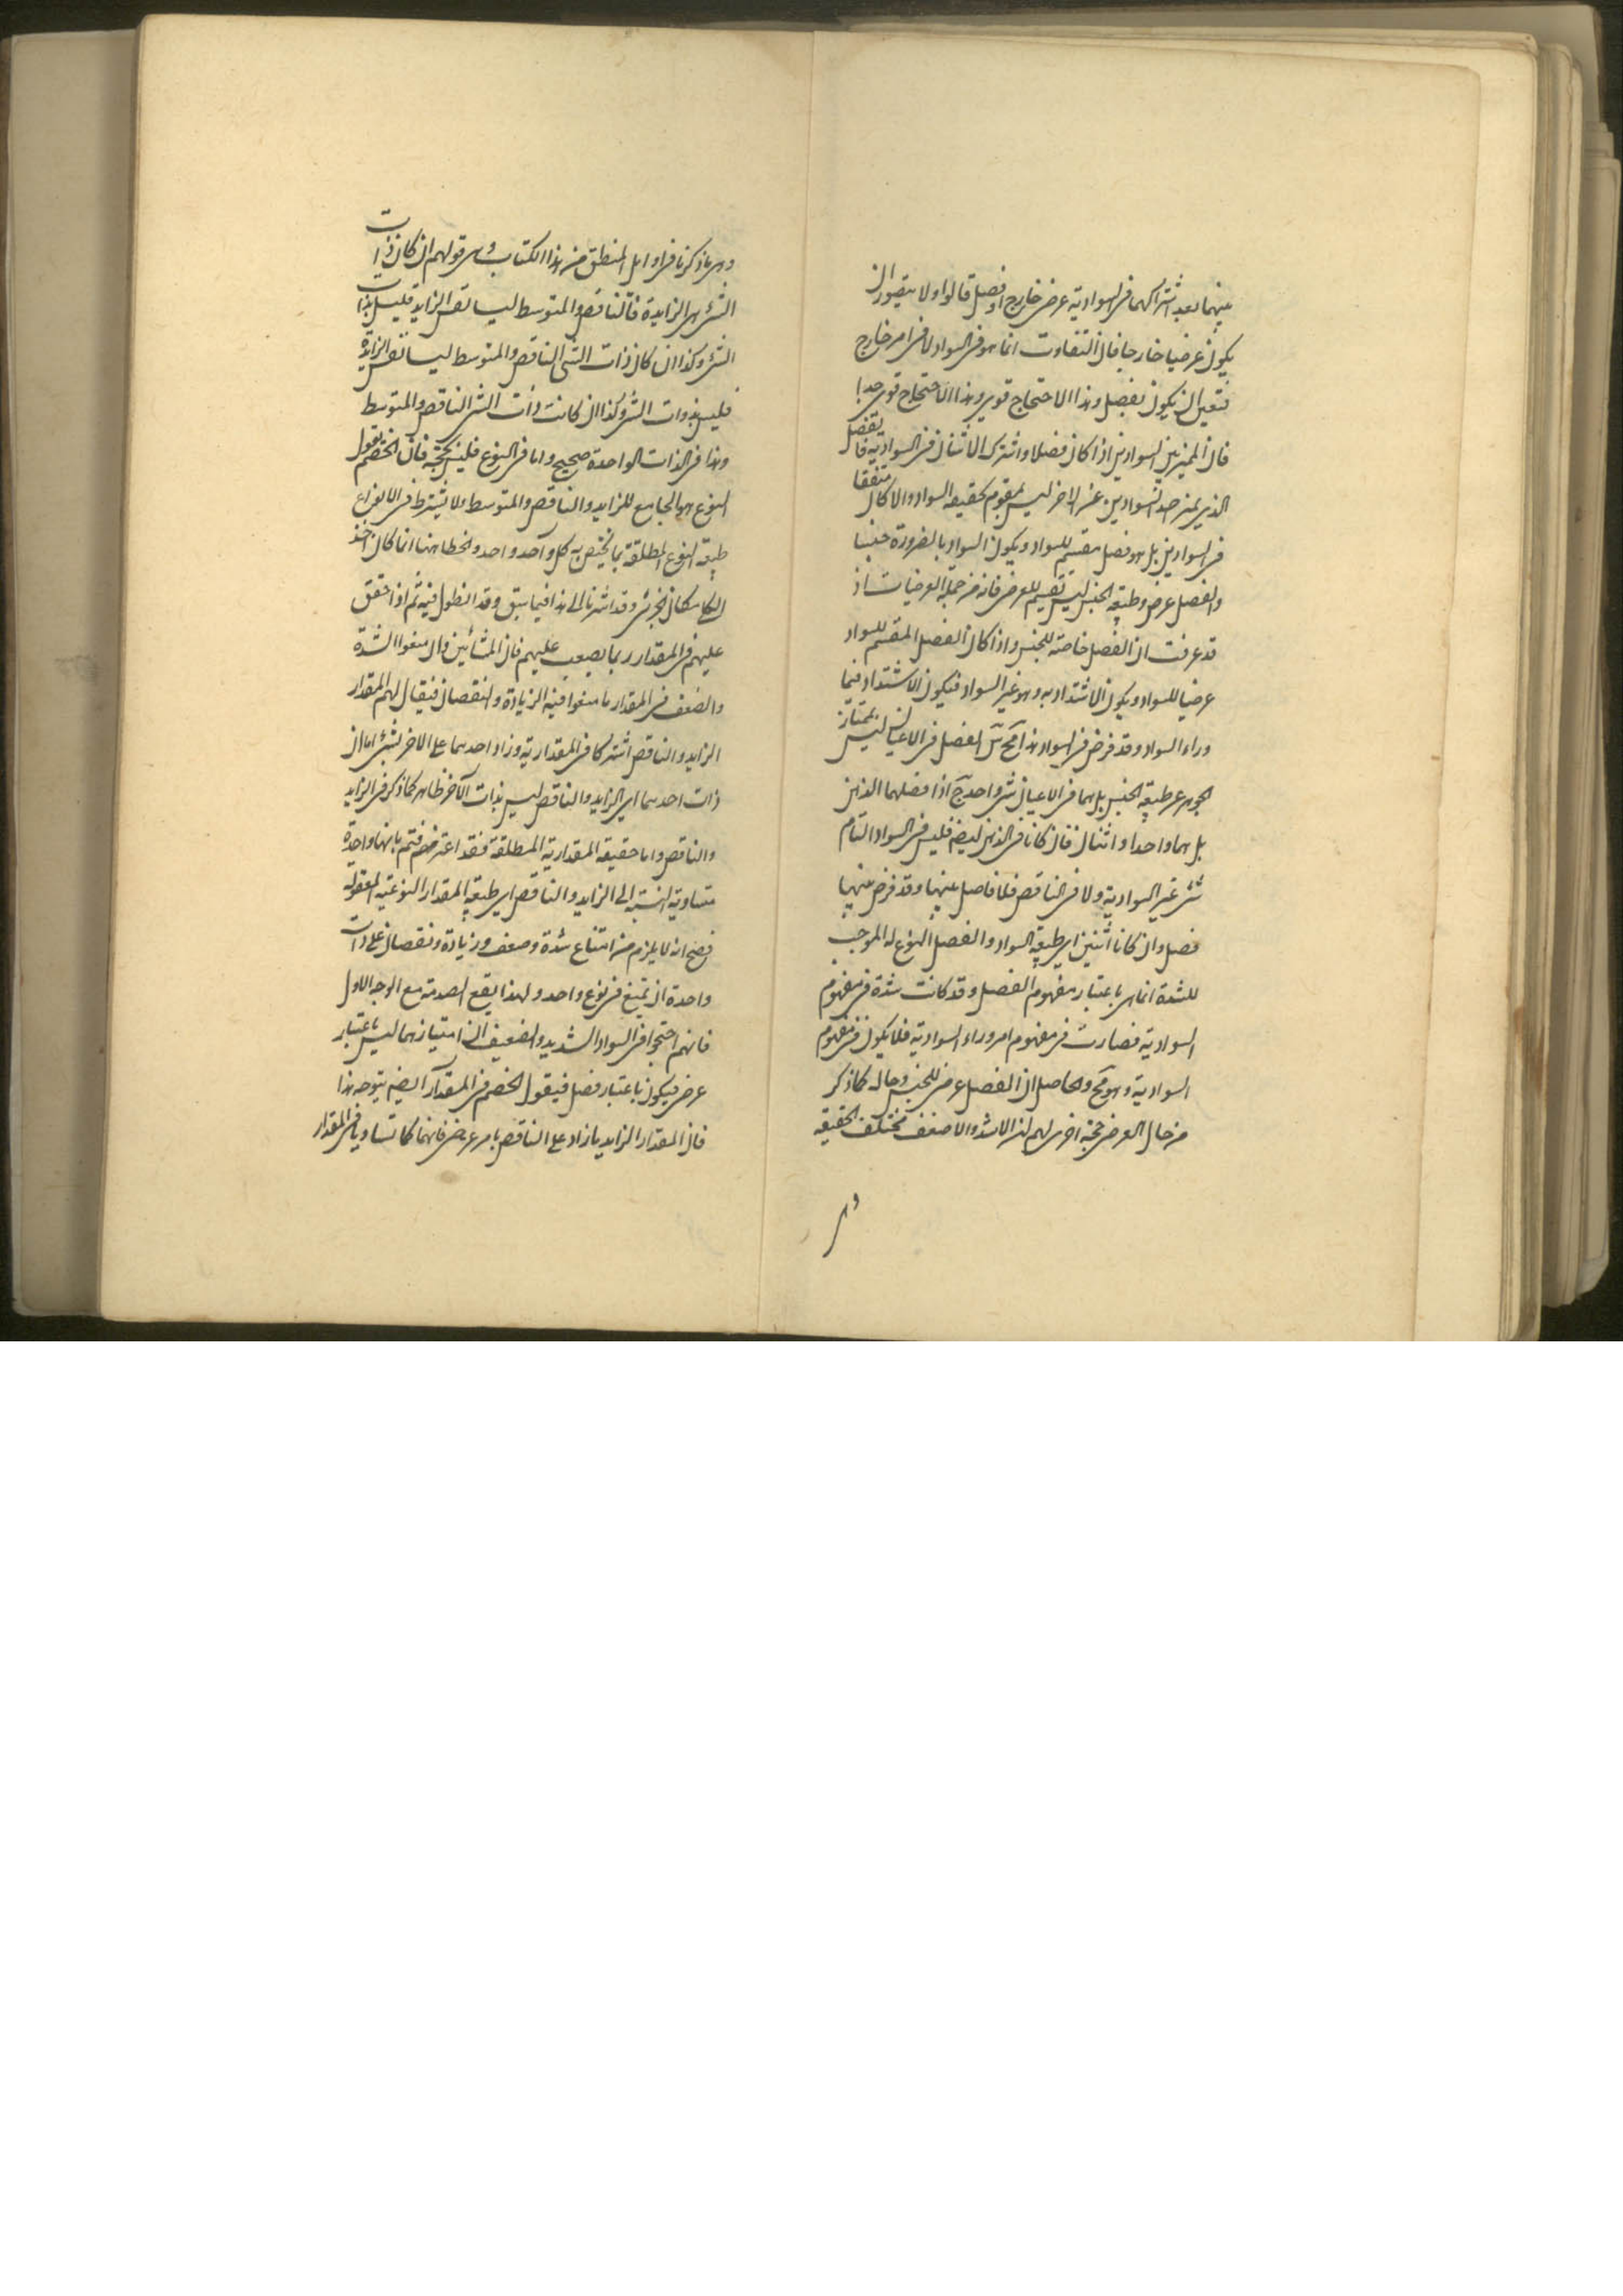 بينهما بعد اشتراكهما فى السوادية عرض خارج او فصل قالوا ولا يتصور ان
يكون عرضيا خارجا فان التفاوت انما هو فى السواد لا فى امر خارج
فتعين ان يكون بفصل وهذا الاحتجاج قوى وهذا الاحتجاج قوى جدا
فان المميز بين السوادين اذا كان فصلا واشترك الاثنان فى السوادية فالفصل
الذى يميز احد السوادين عن الاخر ليس بمقوم لحقيقة السواد والا كان متفقا
فى السوادين بل هو فصل مقسم للسواد ويكون السواد بالضرورة جنسا
والفصل عرض وطبيعة الجنس ليس تقسيم للعرض فانه من جملة العرضيات اذ
قد عرفت ان الفصل خاصة للجنس واذا كان الفصل المقسم للسواد
عرضيا للسواد ويكون الاشتداد به وهو غير السواد فيكون الاشتداد فيما
وراء السواد وقد فرض فى السواد هذا مح الفصل فى الاعيان ليس بممتاز
الجوهر عن طبيعة الجنس بل هما فى الاعيان شئ واحد ح اذا فصلهما الذهن
بل هما واحد او اثنان فان كانا فى الذهن ايضه فليس فى السواد التام
شئ غير السوادية ولا فى الناقص فلا فاصل بينهما وقد فرض بينهما
فصل وان كانا اثنين اى طبيعة السواد والفصل المنوع له الموجب
للشدة انما هى باعتبار مفهوم الفصل وقد كانت شدة فى مفهوم
السوادية فصارت فى مفهوم امر وراء السوادية فلا يكون فى مفهوم
السوادية وهو مح والحاصل ان الفصل عرض للجنس وحاله كما ذكر
من حال العرض حجة اخرى لهم ان الاشد والاضعف مختلف الحقيقة
وهى ما ذكرنا فى اوايل المنطق من هذا الكتاب وهى قولهم ان كان ذات
الشئ هى الزايدة فالناقص والمتوسط ليسا نفس الزايد فليس بذات
الشئ وكذا ان كان ذات الشئ الناقص والمتوسط ليسا نفس الزايدة
فليس بذوات الشئ وكذا ان كانت ذات الشئ الناقص والمتوسط
وهذا فى الذات الواحدة صحيح واما فى النوع فليس بحجة فان الخصم يقول
النوع هو الجامع للزايد والناقص والمتوسط ولا يشترط فى الانواع
طبيعة النوع المطلقة بما يختص به كل واحد واحد والخطا هنا انما كان اخذ
الكلى مكان الجزئى وقد اشرنا الى هذا فيما سبق وقد انطول فيه ثم اذا حقق
عليهم فى المقدار ربما يصعب عليهم فان المشائين وان منعوا الشدة
والضعف فى المقدار ما منعوا فيه الزيادة والنقصان فيقال لهم المقدار
الزايد والناقص اشتركا فى المقدارية وزاد احدهما على الاخر بشئ اما ان
ذات احدهما اى الزايد والناقص ليس بذات الآخر ظاهر كما ذكر فى الزايد
والناقص واما حقيقة المقدارية المطلقة فقد اعترضتم بانها واحدة
متساوية النسبة الى الزايد والناقص اى طبيعة المقدار النوعية المعقولة
فصح انه لا يلزم من امتناع شدة وضعف وزيادة ونقصان على ذات
واحدة ان يمتنع فى نوع واحد ولهذا يقع الصدمة مع الوجه الاول
فانهم احتجوا فى السواد الشديد والضعيف ان امتيازهما ليس باعتبار
عرض فيكون باعتبار فصل فيقول الخصم فى المقدار ايضه يتوجه هذا
فان المقدار الزايد ما زاد على الناقص بامر عرضى فانهما كما تساويا فى المقدار